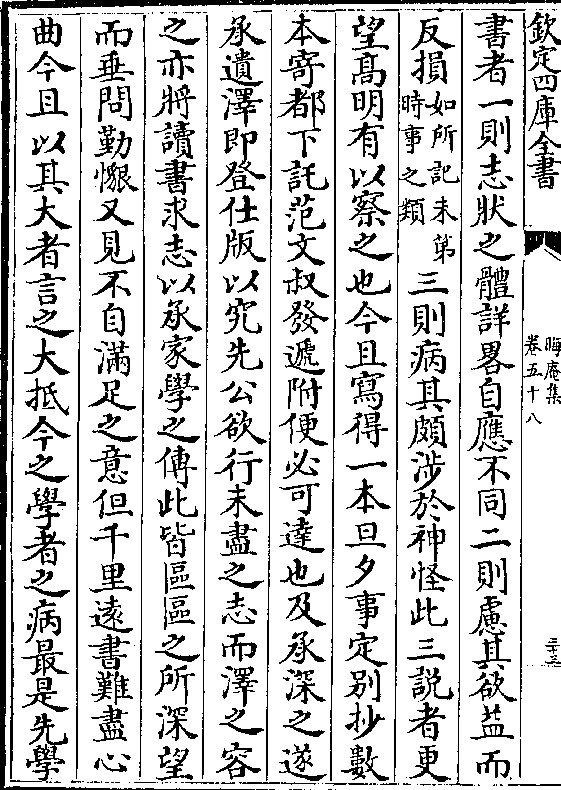 欽定四庫全書
晦庵集
卷五十八
三十三
書者一則志狀之體詳畧自應不同二則慮其欲益而
反損如所記未第時事之類三則病其頗涉於神怪此三説者更
望髙明有以察之也今且寫得一本旦夕事定别抄數
本寄都下託范文叔發遞附便必可達也及承深之遂
承遺澤即登仕版以究先公欲行未盡之志而澤之容
之亦將讀書求志以承家學之傳此皆區區之所深望
而垂問勤懇又見不自滿足之意但千里逺書難盡心
曲今且以其大者言之大抵今之學者之病最是先學